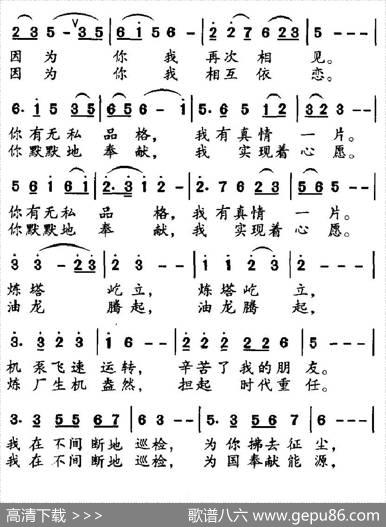 2 3 5 - 3 5 | 1 1 5 6 - | 2 2 7 6 2 3 | 5 - - - |
因为 你我 再次相见。
因为 你我 相互依恋。
6. 1 5 3 5 | 6 5 6 - - | 5. 6 5 1 2 | 3 2 3 - - |
你有无私品格， 我有真情一片。
你默默地奉献， 我实现着心愿。
5 6 1 6 1 | 2. 3 1 2 - | 2. 7 6 2 3 | 5 6 5 - - |
你有无私品格， 我有真情一片。
你默默地奉献， 我实现着心愿。
3 3 - 2 3 | 2 3 - - | 1 1 2 3 | 2 - - - |
炼塔 屹立， 炼塔屹立，
油龙 腾起， 油龙腾起，
3. 3 2 3 | 1 6 - - | 2 2 2 2 7 6 | 5 - - - |
机泵飞速运转， 辛苦了我的朋友。
炼厂生机盎然， 担起时代重任。
3. 3 5 5 6 7 | 6 3 - - | 5. 3 5 6 7 | 1 - - - |
我在不间断地巡检， 为你拂去征尘，
我在不间断地巡检， 为国奉献能源，
高清下载 >>> 歌谱八六 www.gepu86.com